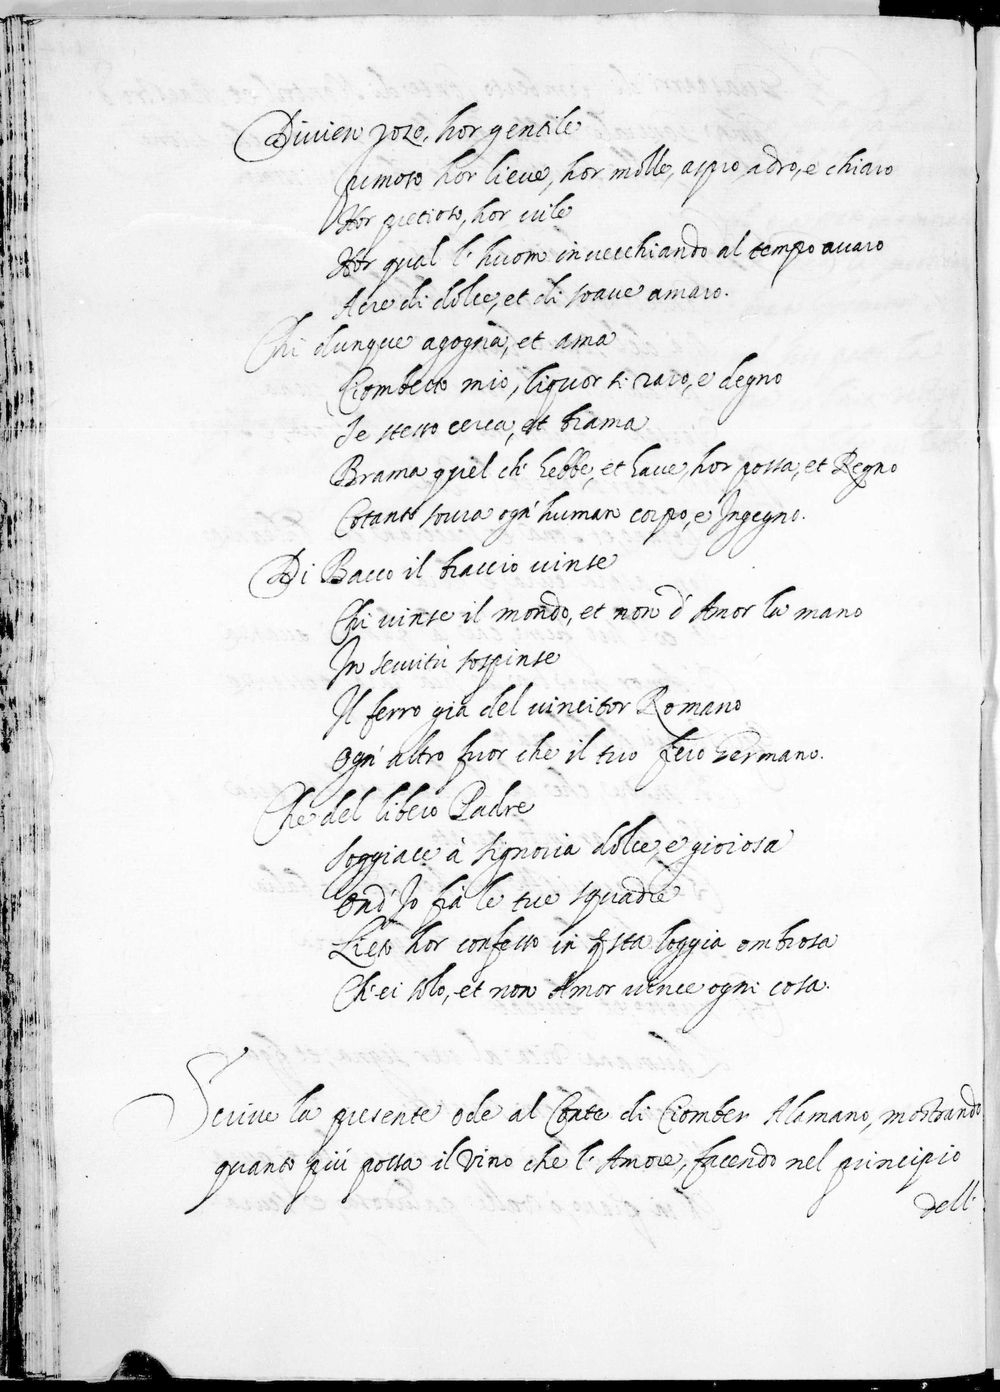 Diuien roze, hor gentile
fumoso hor lieue, hor molle, aspro, adro, e chiaro
Hor pretioso, hor uile
Hor qual l'huom inuecchiando al tempo auaro
Acre di dolce, et di soaue amaro.
Chi dunque agogna, et ama
Ciomberto mio, liquor si raro, e degno
Se stesso cerca, et brama
Brama quel ch'hebbe, et haue, hor possa, et Regno
Cotanto soura ogn'human corpo, e Ingegno.
Di Bacco il braccio uinse
Chi uinse il mondo, et non d'Amor la mano
In seruitù sospinse
Il ferro già del uincitor Romano
Ogn'altro fuor che il tuo fero Germano.
Che del libero Padre
Soggiace à signoria dolce, e gioiosa
Ond'Io frà le tue squadre
Lieto hor confesso in questa loggia ombrosa
Ch'ei solo, et non Amor uince ogni cosa.
Scriue la presente ode al Conte di Ciomber Alamano, mostrando
quanto più possa il Vino che l'Amore, facendo nel principio
dell'